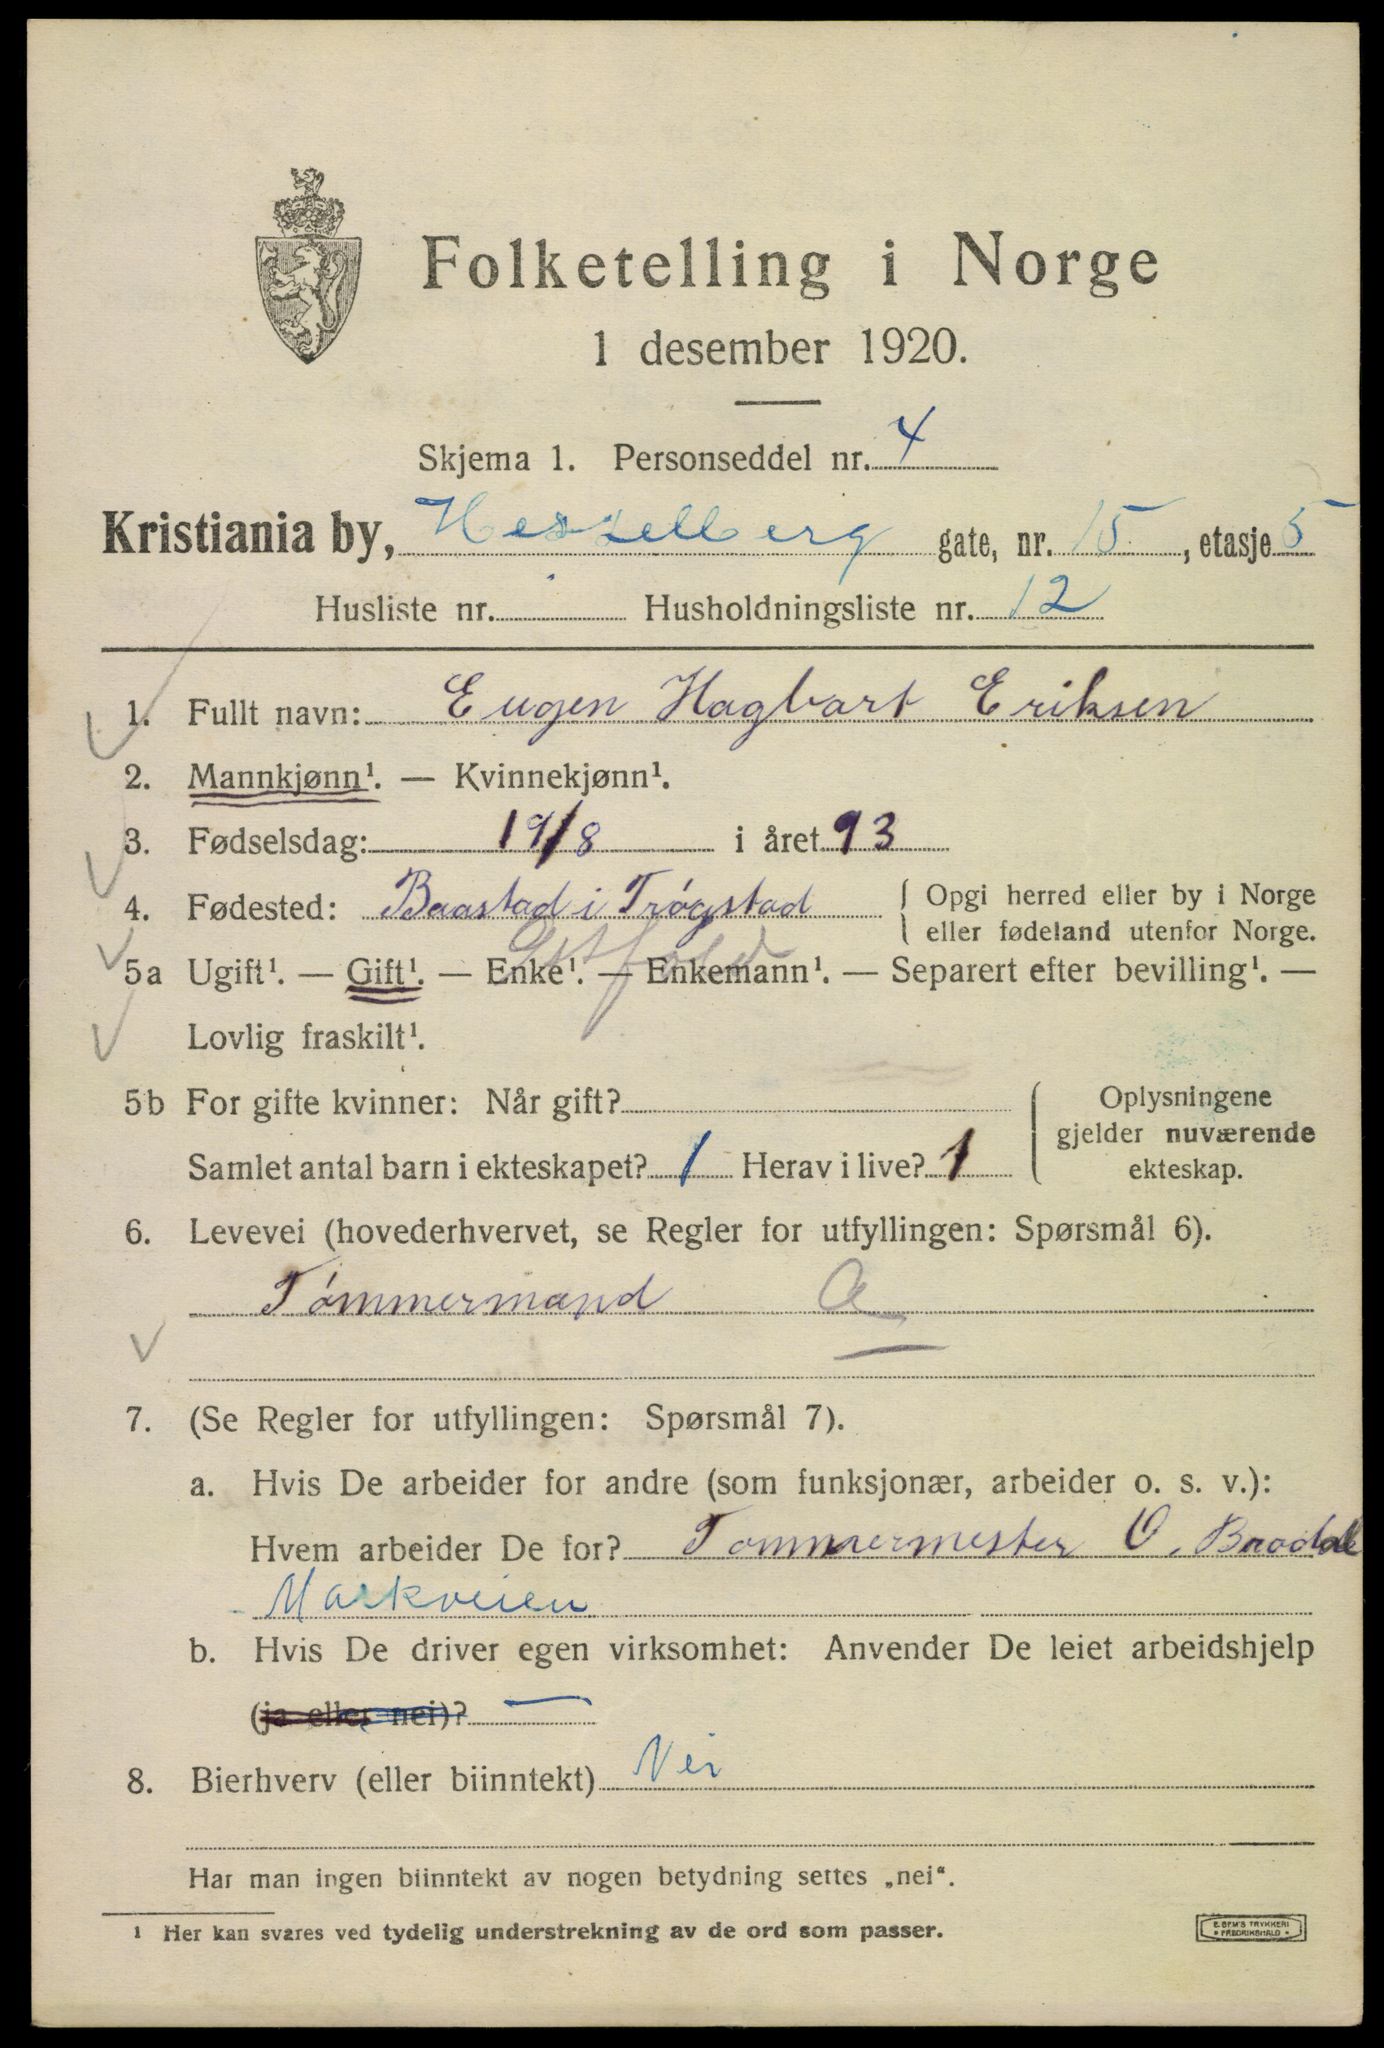 Folketelling i Norge
1 desember 1920.
Skjema 1. Personseddel nr. 4
Kristiania by, Hesselberg gate, nr. 15, etasje 5
Husliste nr. Husholdningsliste nr. 12
1. Fullt navn: Eugen Hagbart Eriksen
2. Mannkjønn¹. — Kvinnekjønn¹.
3. Fødselsdag: 19/8 i året 93
4. Fødested: Baastad i Trøgstad { Opgi herred eller by i Norge
eller fødeland utenfor Norge.
Østfold
5a Ugift¹. — Gift¹. — Enke¹. — Enkemann¹. — Separert efter bevilling¹. —
Lovlig fraskilt¹.
5b For gifte kvinner: Når gift?
Samlet antal barn i ekteskapet? 1 Herav i live? 1
Oplysningene
gjelder nuværende
ekteskap.
6. Levevei (hovederhvervet, se Regler for utfyllingen: Spørsmål 6).
Tømmermand A
7. (Se Regler for utfyllingen: Spørsmål 7).
a. Hvis De arbeider for andre (som funksjonær, arbeider o. s. v.):
Hvem arbeider De for? Tømmermester O.
Markveien
b. Hvis De driver egen virksomhet: Anvender De leiet arbeidshjelp
(ja eller nei)? —
8. Bierhverv (eller biinntekt) Nei
Har man ingen biinntekt av nogen betydning settes „nei“.
1 Her kan svares ved tydelig understrekning av de ord som passer.
E. SEM'S TRYKKERI
• FREDRIKSHALD •